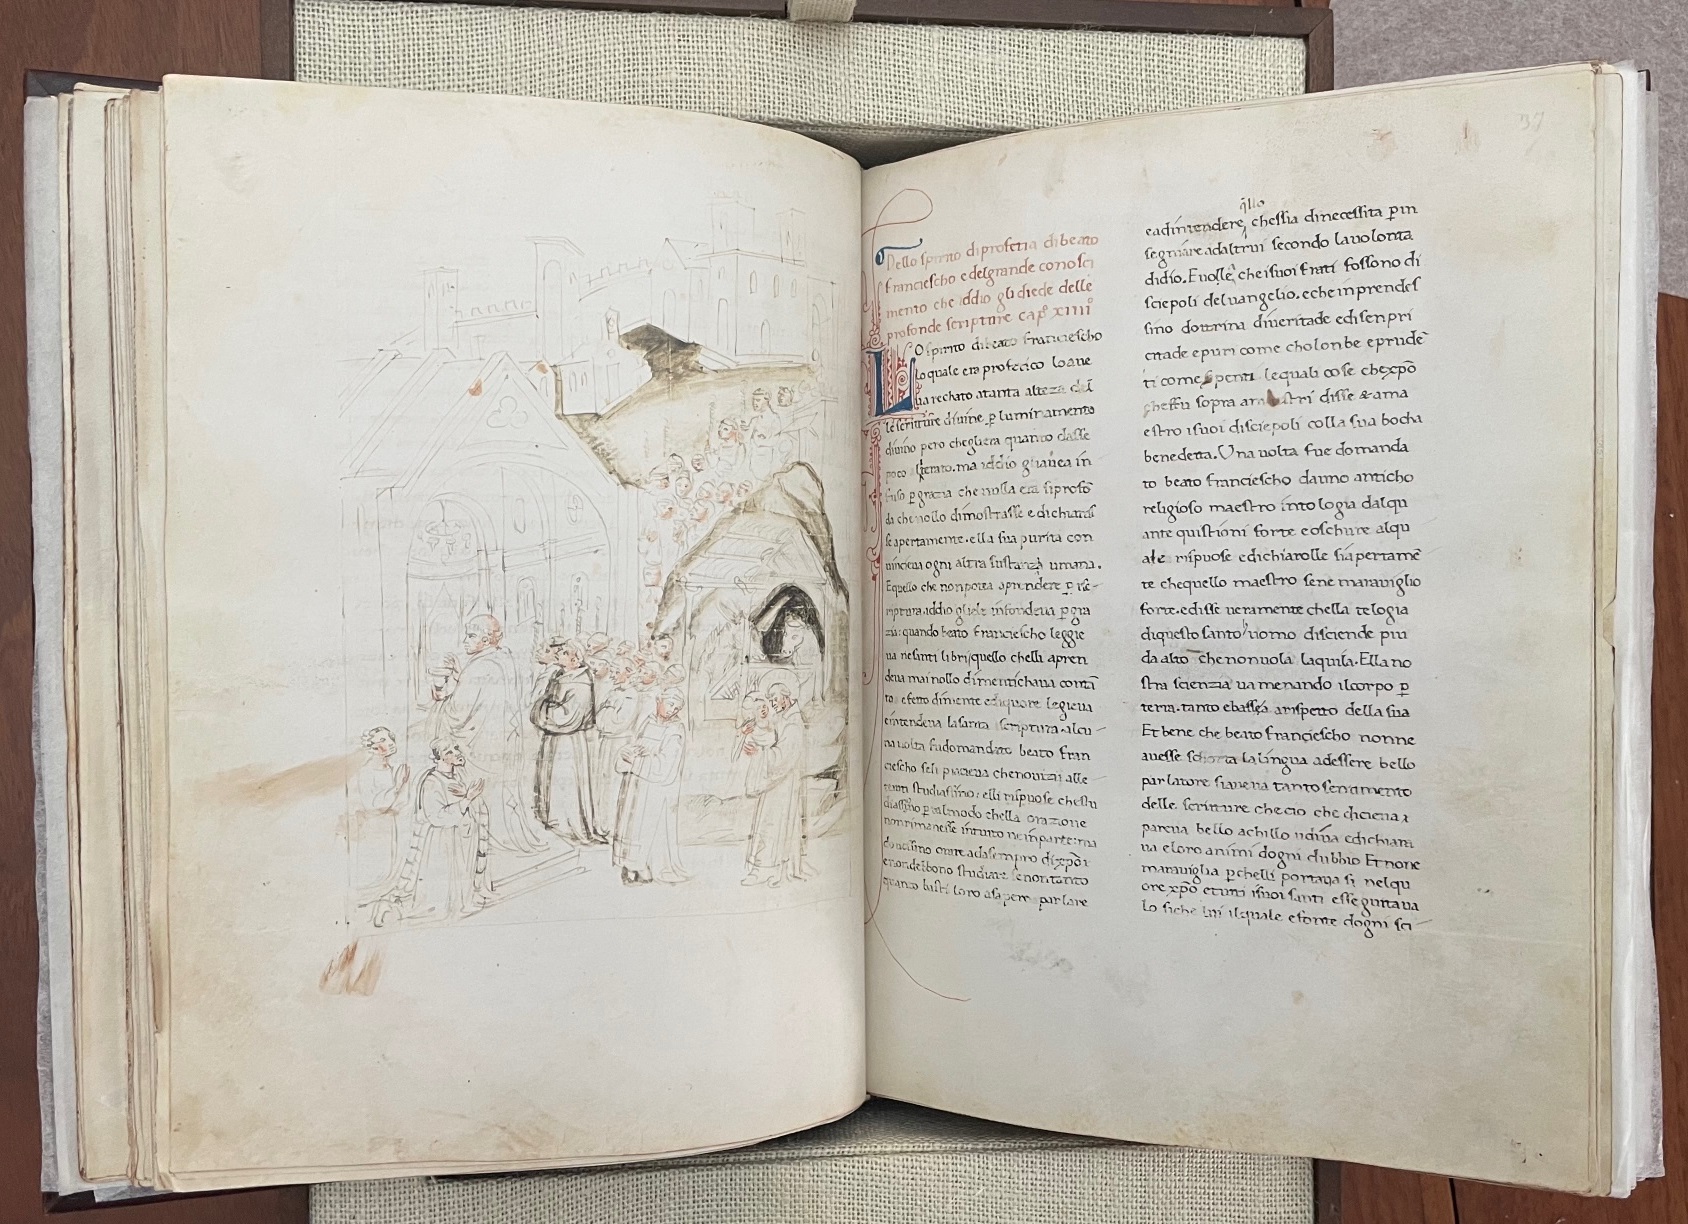 37
Dello spirito di profetia di beato
Franciescho e del grande conosci
mento che iddio gli diede delle
profonde scripture cap⁰ xiiii⁰
LO spirito di beato Franciescho
lo quale era profetico lo ave
ua rechato atanta alteza del
le scritture diuine. p luminamento
diuino pero chegliera quanto dasse
poco litterato. ma iddio gliauea in
fuso p grazia che nulla era si profō
da che nollo dimostrasse e dichiaras
se apertamente. ella sua purita con
uinceua ogni altra sustanza umana.
Equello che non potea aprendere p
scriptura iddio gliele infondeua p gra
zia: quando beato Franciescho leggie
ua nesanti libri quello chelli apren
deua mai nollo dimentichaua contī
uo efetto
eintendeua la santa scriptura. alcu
na uolta fu domandato beato Fran
ciescho seli piaceua che nouizi alle
studiassino: elli rispuose che stu
diassino p tal modo chella orazione
non rimanesse intutto ne inparte: ma
orare adasempro di xp̄o:
studiare se non tanto
quanto basti loro a sapere parlare
q̄llo
ead intendere chessia di necessita p in
segniare ad altrui secondo la uolonta
didio. E uolle che i suoi frati fossono di
sciepoli del uangelio. e che inprendes
sino dottrina di ueritade ed isenpri
citade e puri come cholonbe e prudē
ti come serpenti le quali cose che xp̄o
cheffu sopra amaestri disse & ama
estro i suoi disciepoli colla sua bocha
benedetta. Una uolta fue domanda
to beato Franciescho da uno anticho
religioso maestro in tologia dalqu
ante quistioni forte e oschure alqu
ale rispuose e dichiarolle si apertamē
te chequello maestro sene marauiglio
forte. e disse ueramente chella telogia
di questo santo uomo disciende piu
da alto che non uola laquila. Ella no
stra scienzia ua menando il corpo p
terra. tanto e bassa a rispetto della sua
Et bene che beato Franciescho nonne
auesse sciorta la lingua adessere bello
parlatore si aueua tanto sentimento
delle scritture che cio che diceua
parea bello achillo udiua e dichiara
ua eloro animi dogni dubbio Et none
marauiglia p chelli portaua si nelqu
ore xp̄o e tutti i suoi santi esseguitaua
lo siche lui il quale e fonte dogni sci